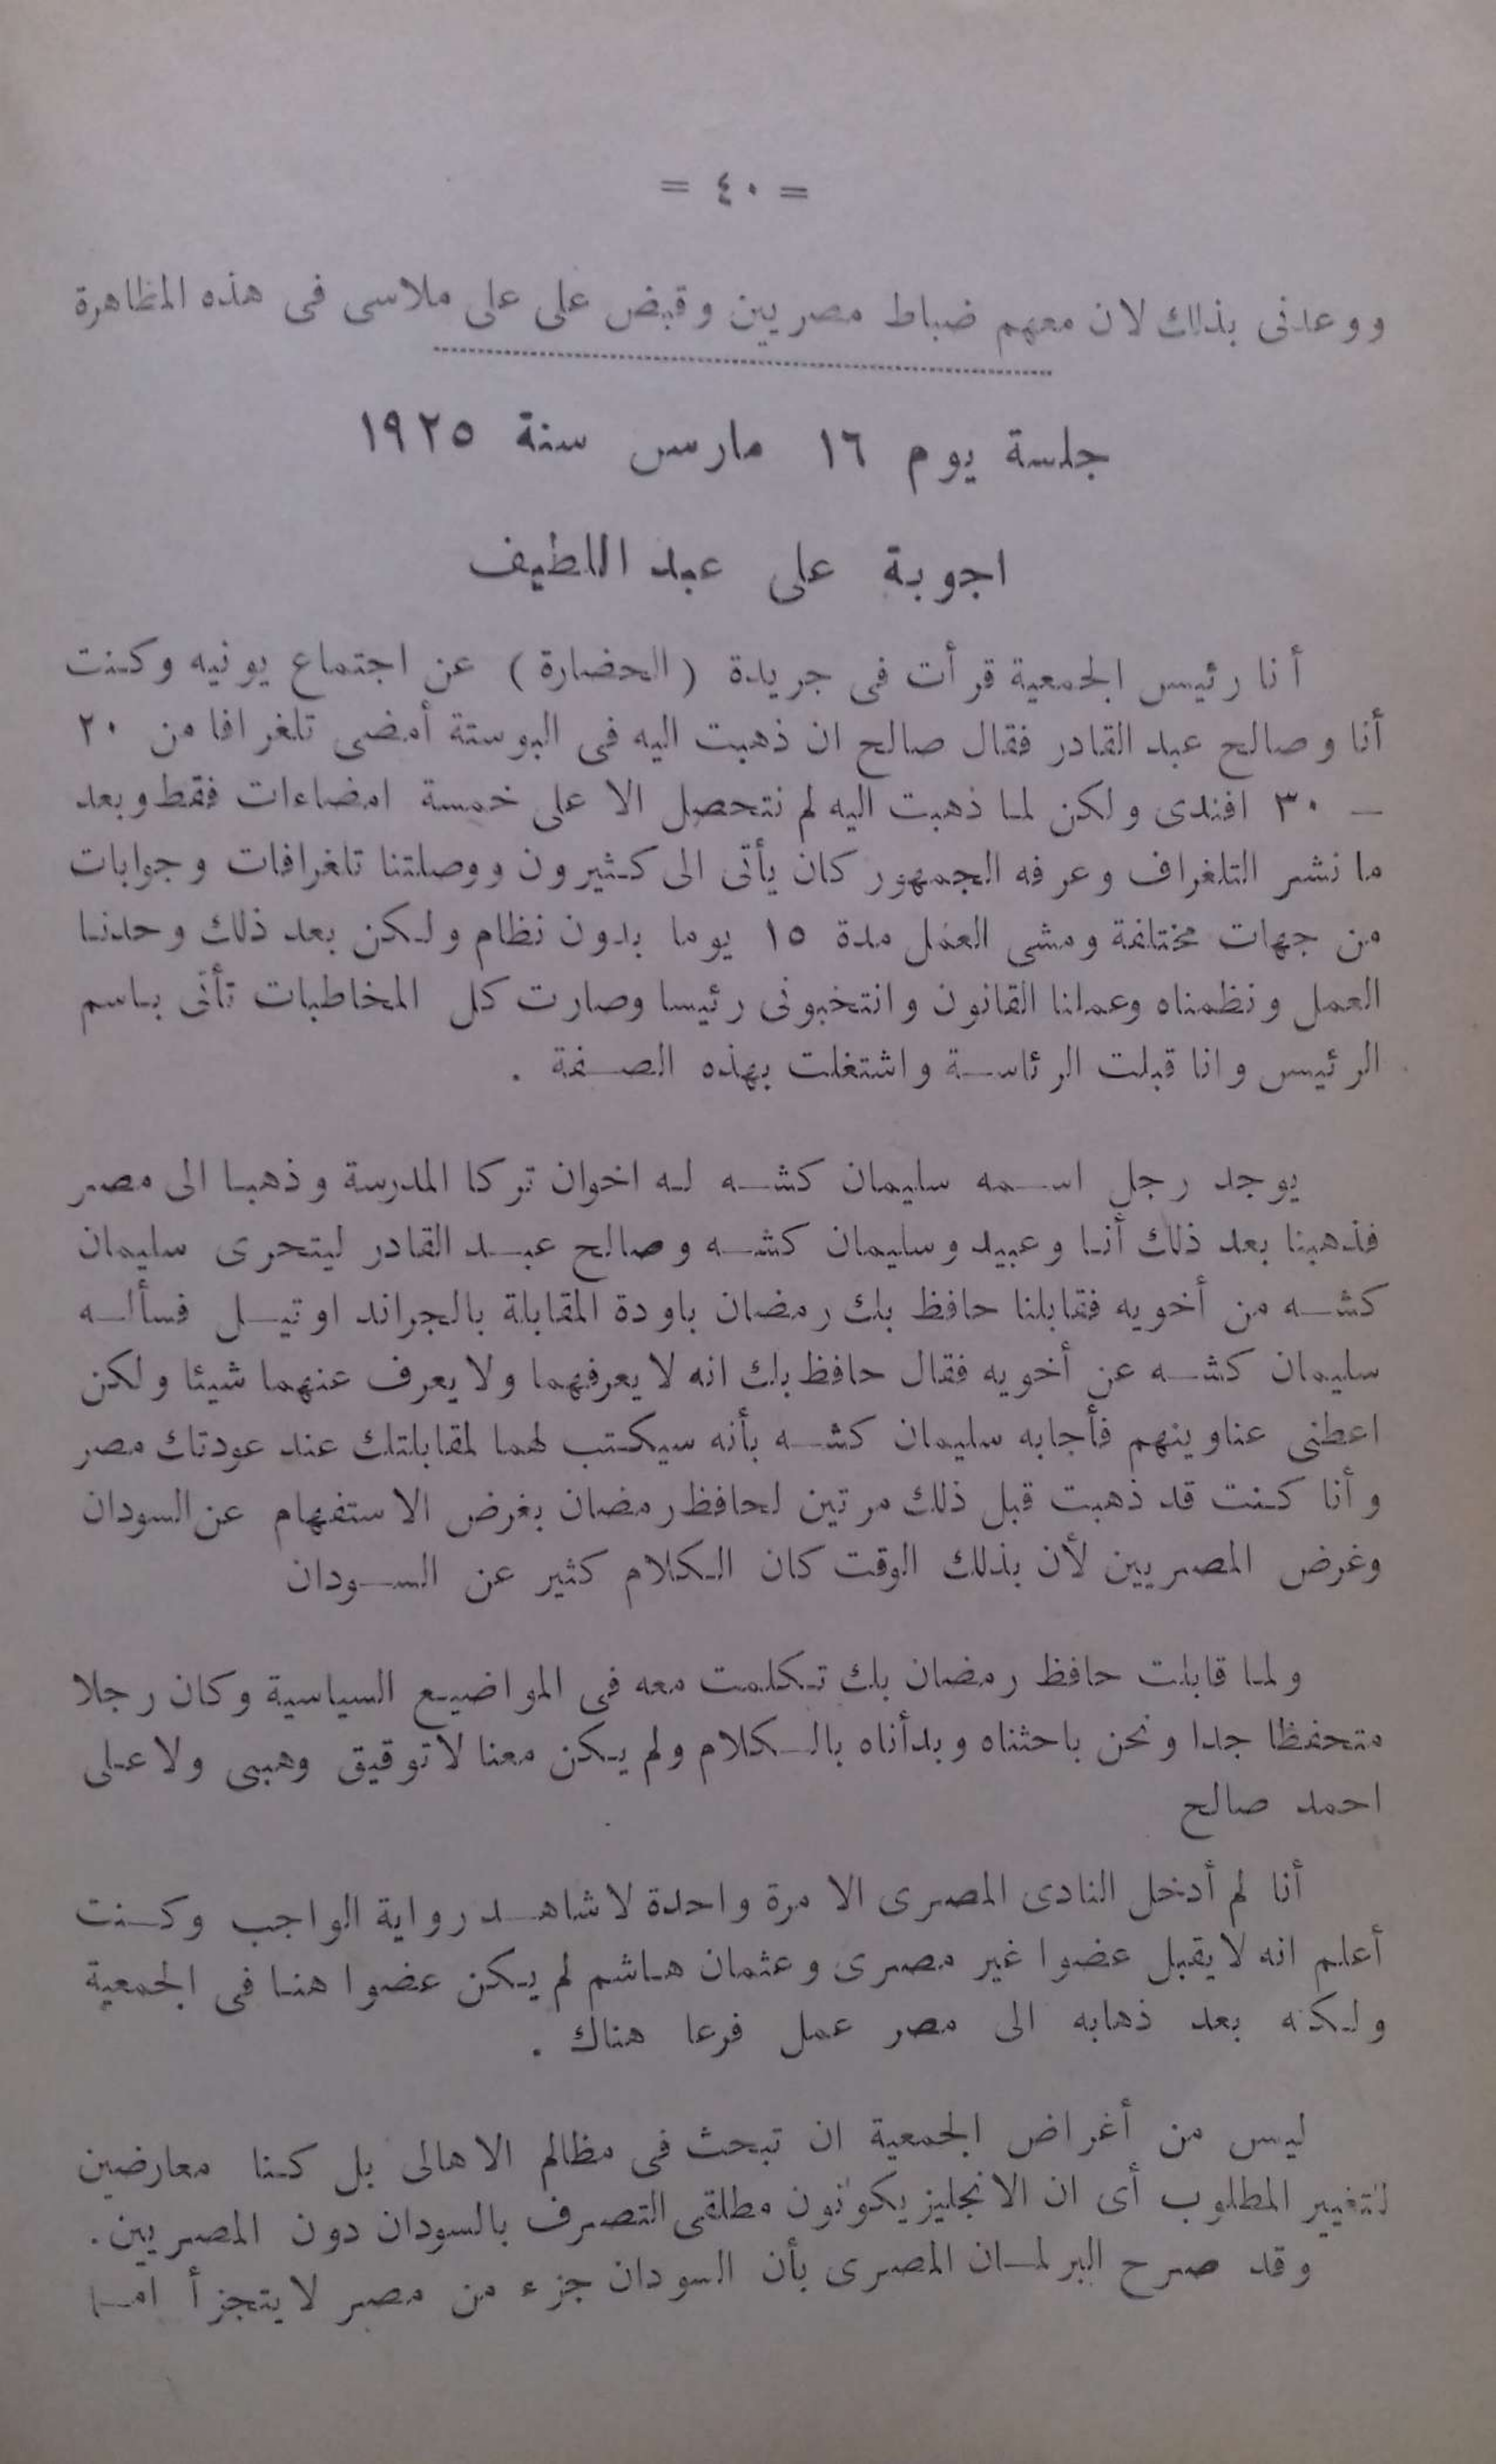 = ٤٠ =
ووعدنى بذلك لان معهم ضباط مصريين وقبض على على ملاسى فى هذه المظاهرة
جلسة يوم ١٦ مارس سنة ١٩٢٥
اجوبة على عبد اللطيف
أنا رئيس الجمعية قرأت فى جريدة (الحضارة) عن اجتماع يونيه وكنت
أنا وصالح عبد القادر فقال صالح ان ذهبت اليه فى البوستة أمضى تلغرافا من ٢٠
— ٣٠ افندى ولكن لما ذهبت اليه لم نتحصل الا على خمسة امضاءات فقط وبعد
ما نشر التلغراف وعرفه الجمهور كان يأتى الى كثيرون ووصلتنا تلغرافات وجوابات
من جهات مختلفة ومشى العمل مدة ١٥ يوما بدون نظام ولكن بعد ذلك وحدنا
العمل ونظمناه وعملنا القانون وانتخبونى رئيسا وصارت كل المخاطبات تأتى باسم
الرئيس وانا قبلت الرئاسة واشتغلت بهذه الصفة .
يوجد رجل اسمه سليمان كشه له اخوان تركا المدرسة وذهبا الى مصر
فذهبنا بعد ذلك أنا وعبيد وسليمان كشه وصالح عبد القادر ليتحرى سليمان
كشه من أخويه فقابلنا حافظ بك رمضان باودة المقابلة بالجراند اوتيل فسأله
سليمان كشه عن أخويه فقال حافظ بك انه لا يعرفهما ولا يعرف عنهما شيئا ولكن
اعطنى عناوينهم فأجابه سليمان كشه بأنه سيكتب لهما لمقابلتك عند عودتك مصر
وأنا كنت قد ذهبت قبل ذلك مرتين لحافظ رمضان بغرض الاستفهام عن السودان
وغرض المصريين لأن بذلك الوقت كان الكلام كثير عن السودان
ولما قابلت حافظ رمضان بك تكلمت معه فى المواضيع السياسية وكان رجلا
متحفظا جدا ونحن باحثناه وبدأناه بالكلام ولم يكن معنا لا توفيق وهبى ولا على
احمد صالح
أنا لم أدخل النادى المصرى الا مرة واحدة لا شاهد رواية الواجب وكنت
أعلم انه لا يقبل عضوا غير مصرى وعثمان هاشم لم يكن عضوا هنا فى الجمعية
ولكنه بعد ذهابه الى مصر عمل فرعا هناك .
ليس من أغراض الجمعية ان تبحث فى مظالم الاهالى بل كنا معارضين
لتغيير المطلوب أى ان الانجليز يكونون مطلقى التصرف بالسودان دون المصريين.
وقد صرح البرلمان المصرى بأن السودان جزء من مصر لا يتجزأ اما